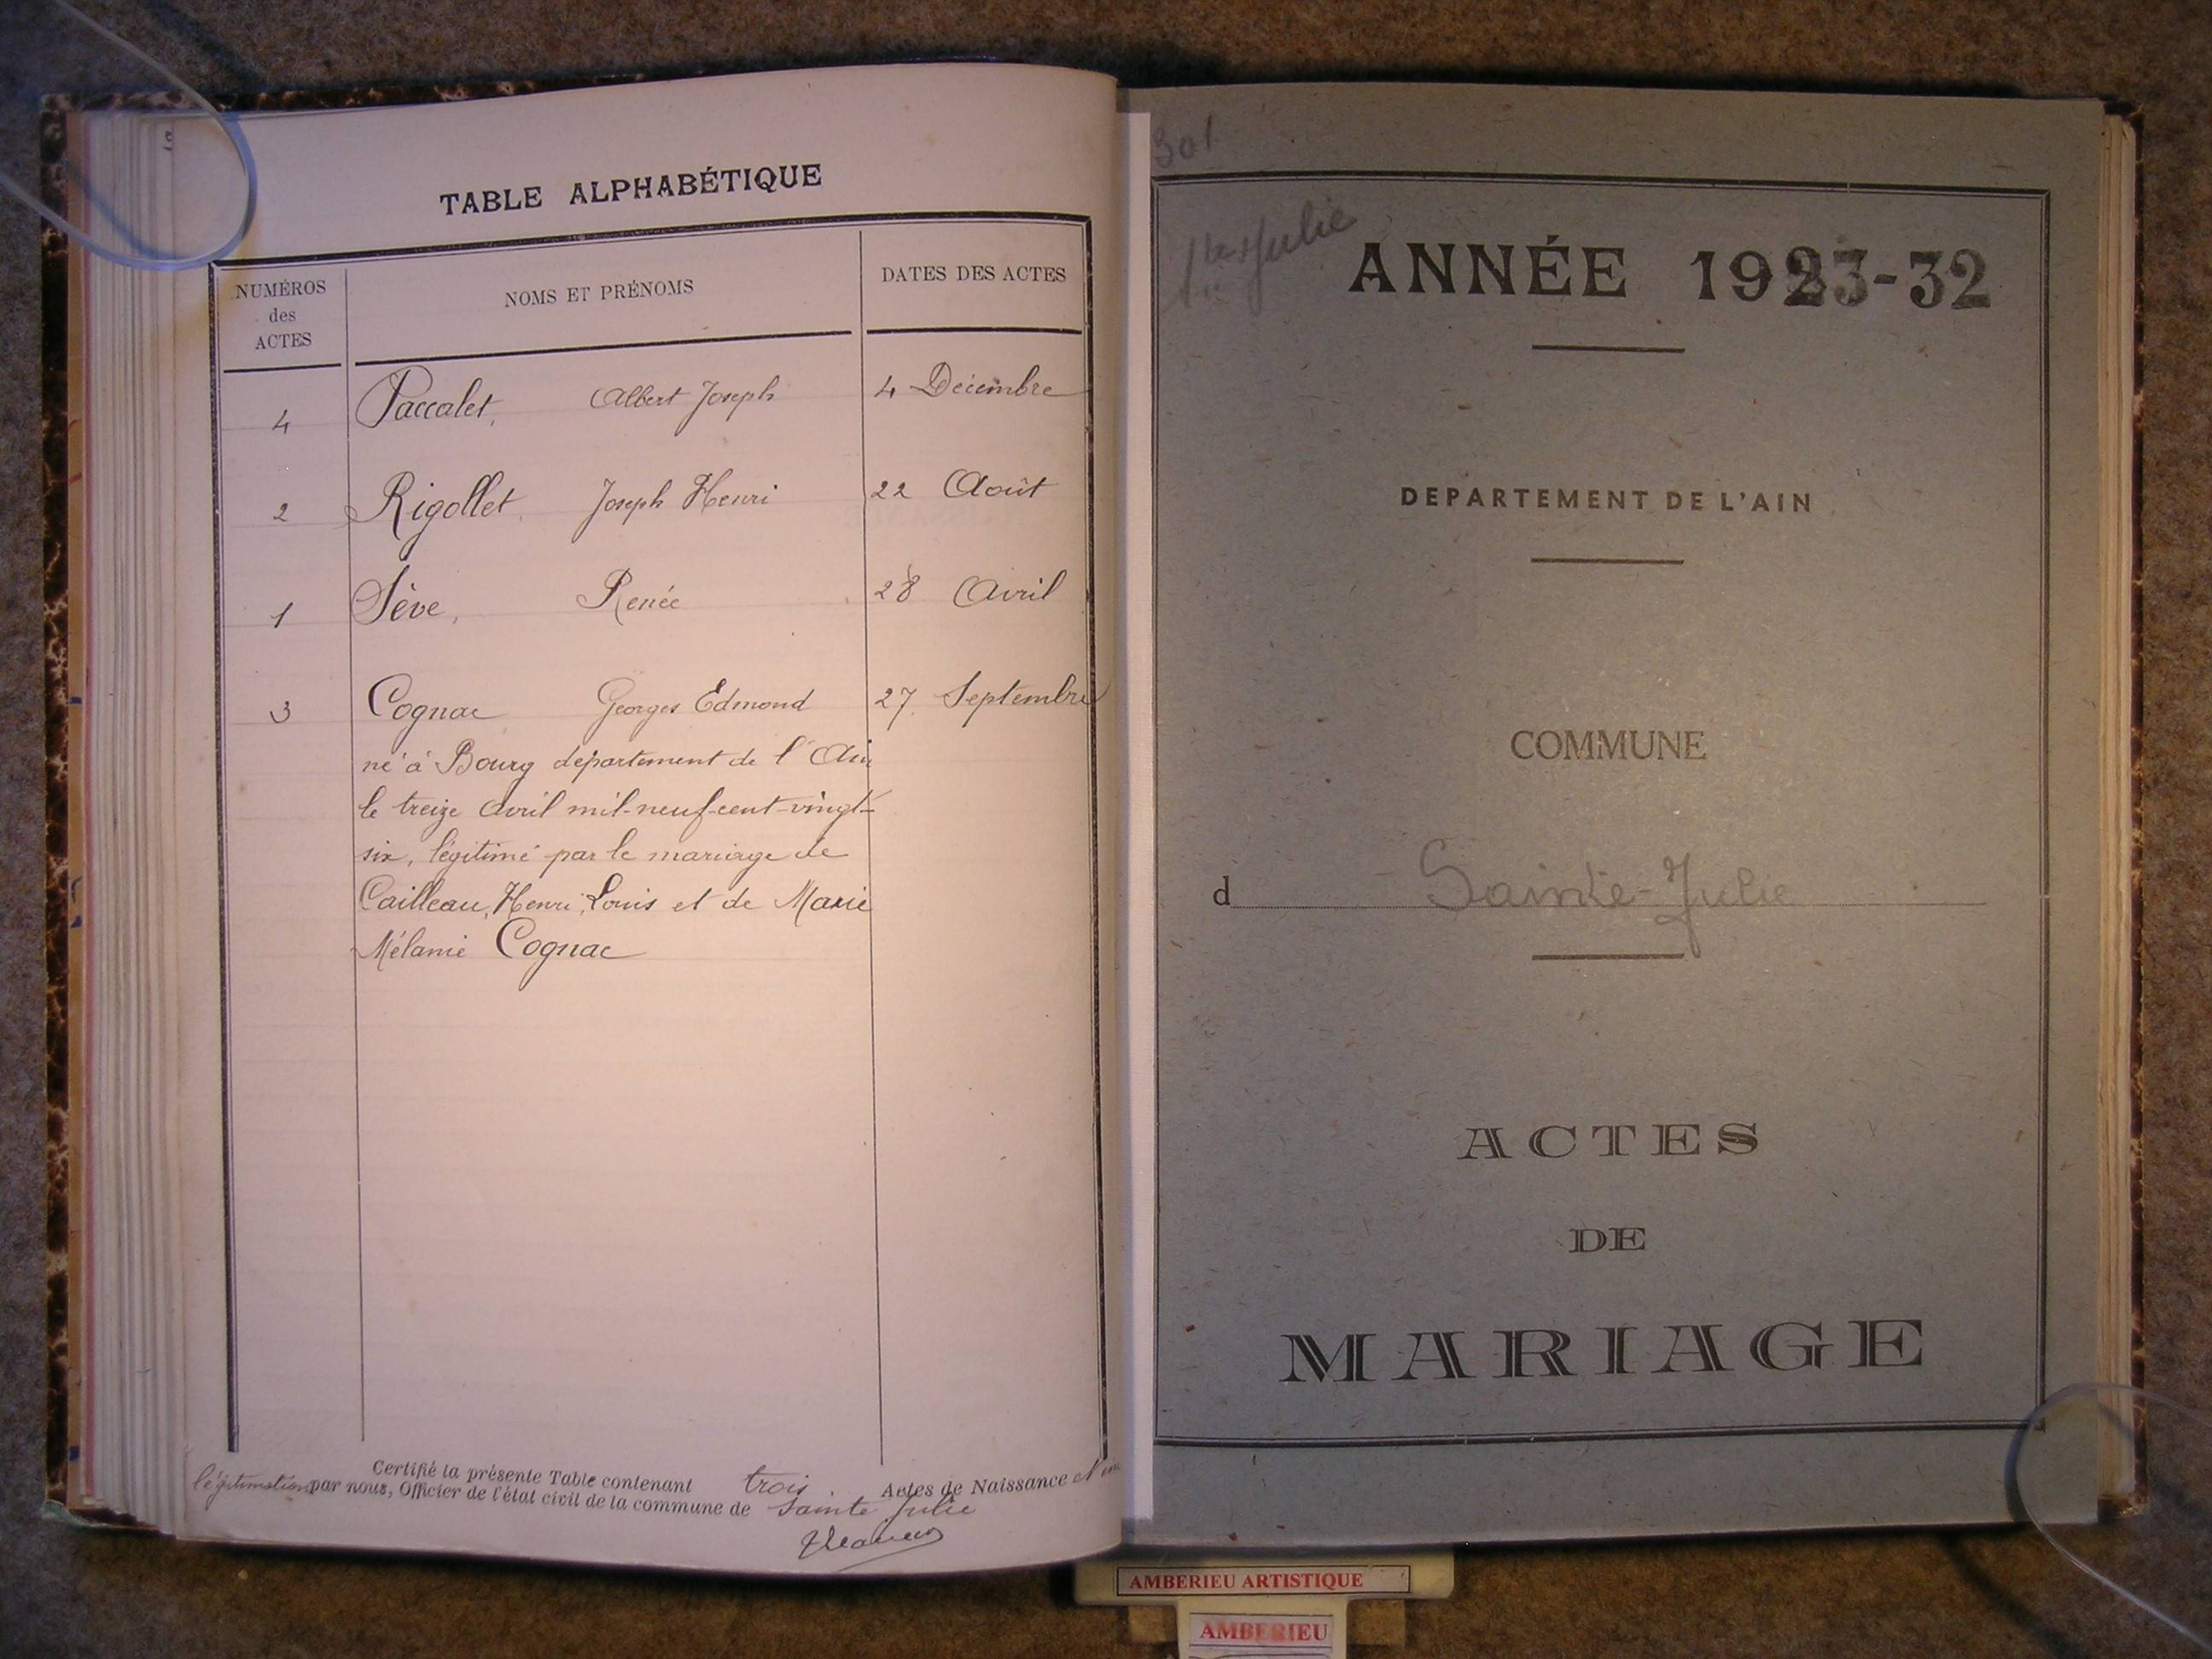 TABLE ALPHABÉTIQUE
NUMÉROS
des
ACTES
NOMS ET PRÉNOMS
DATES DES ACTES
4 Paccalet, Albert Joseph 4 Décembre
2 Rigollet, Joseph Henri 22 Août
1 Sève, Renée 28 Avril
3 Cognac Georges Edmond 27 Septembre
né à Bourg département de l'Ain
le treize avril mil-neuf-cent-vingt-
six, légitimé par le mariage de
Cailleau, Henri, Louis et de Marie
Mélanie Cognac
Certifié la présente Table contenant trois Actes de Naissance et une
légitimation par nous, Officier de l'état civil de la commune de Sainte Julie
301
Ste Julie
ANNÉE 1923-32
DEPARTEMENT DE L'AIN
COMMUNE
d Sainte-Julie
ACTES
DE
MARIAGE
AMBERIEU ARTISTIQUE
AMBERIEU